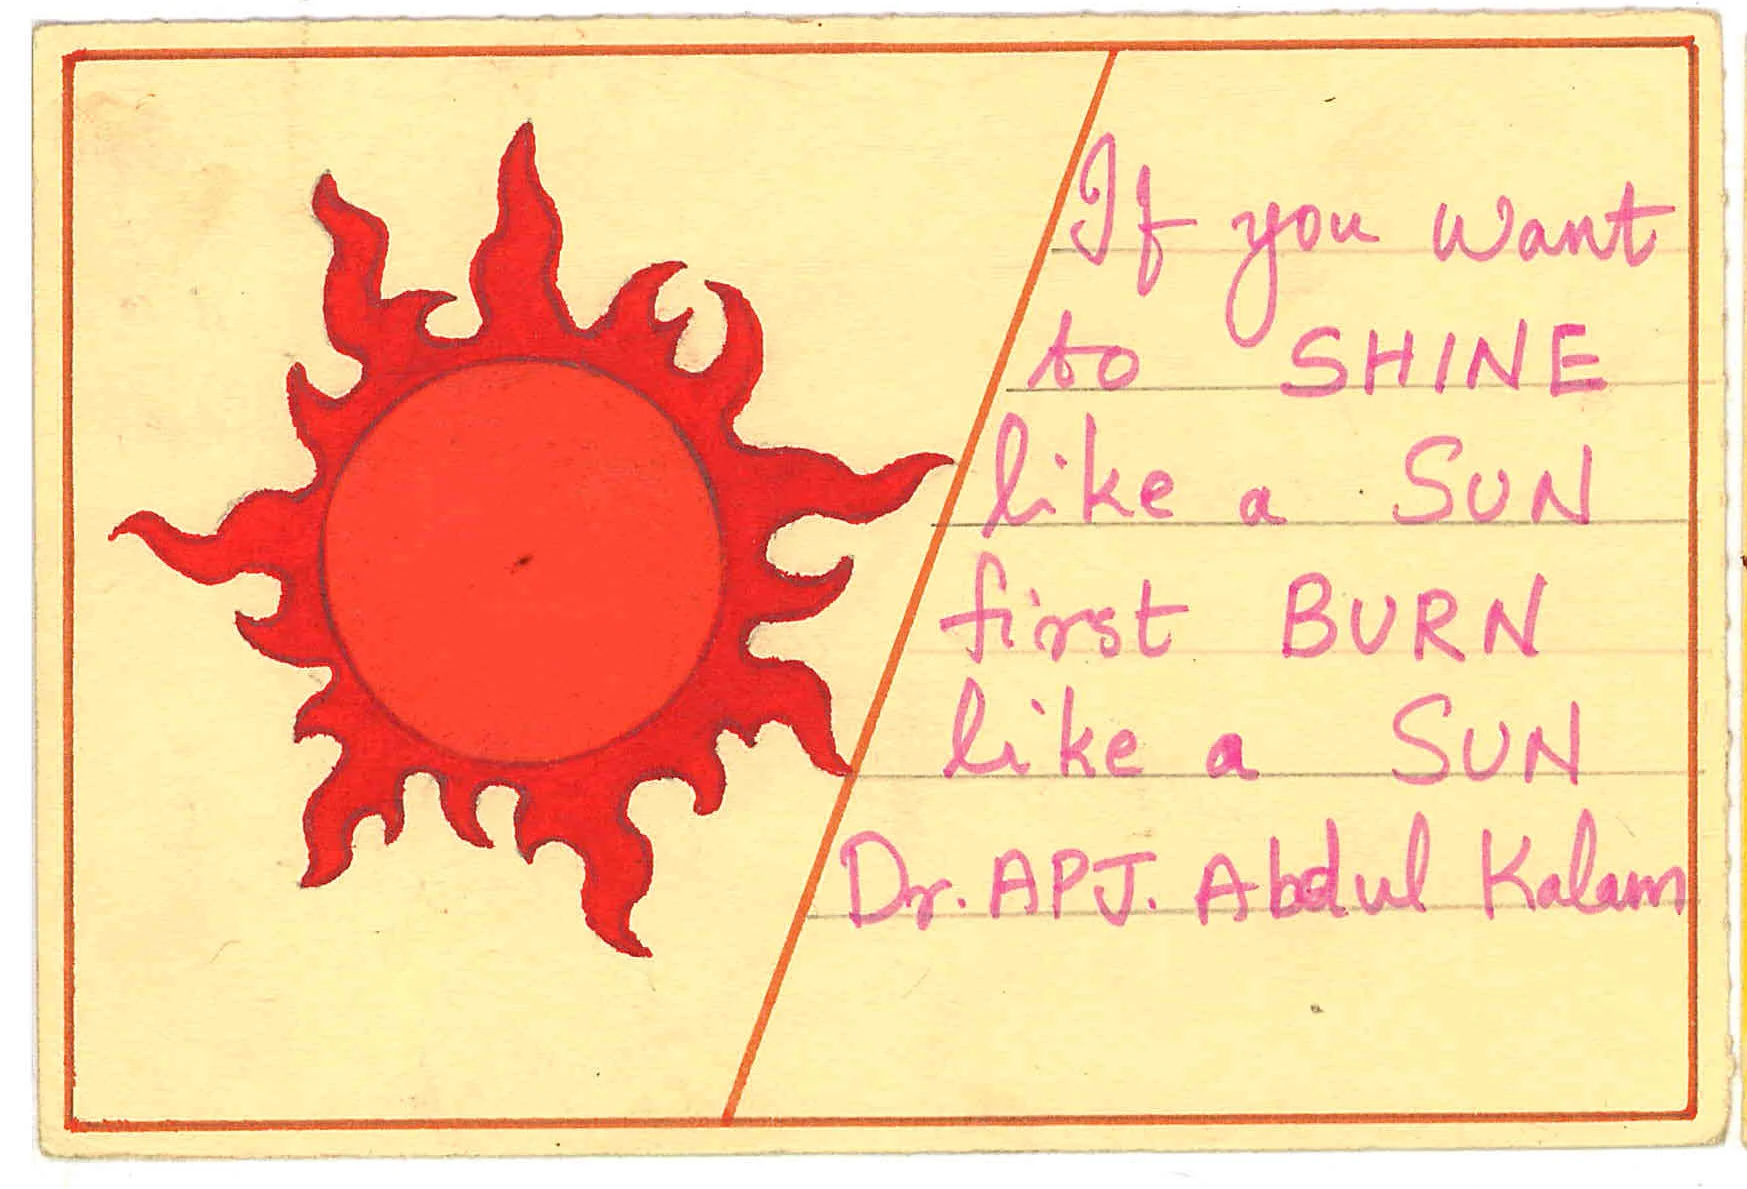 If you want
to SHINE
like a SUN
first BURN
like a SUN
Dr. APJ. Abdul Kalam